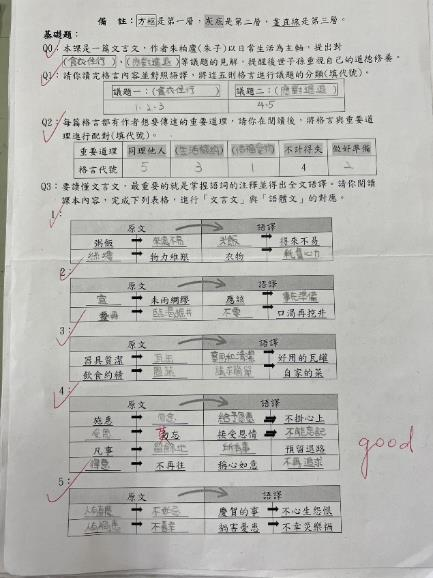 備 註：方框是第一層，灰底是第二層，畫直線是第三層。
基礎題：
Q0：本課是一篇文言文，作者朱柏廬(朱子)以日常生活為主軸，提出對
(食衣住行)、(應對進退)等議題的見解，提醒後世子孫重視自己的道德修養。
Q1：請你讀完格言內容並對照語譯，將這五則格言進行議題的分類(填代號)。
議題一：(食衣住行) 議題二：(應對進退)
1.2.3 4.5
Q2：每篇格言都有作者想要傳達的重要道理，請你在閱讀後，將格言與重要道
理進行配對(填代號)。
重要道理 同理他人 不計得失 做好準備
格言代號 5 3 1 4 2
Q3：要讀懂文言文，最重要的就是掌握語詞的注釋並得出全文語譯。請你閱讀
課本內容，完成下列表格，進行「文言文」與「語體文」的對應。
1：
原文 語譯
粥飯 來處不易 得來不易
物力維艱 衣物
2：
原文 語譯
宜 未雨綢繆 應該 事先準備
臨渴掘井 不要 口渴再挖井
3：
原文 語譯
器具質潔 瓦缶 好用的瓦罐
飲食約精 園蔬 自家的菜
4：
原文 語譯
施惠 勿念 給予恩惠 不掛心上
萬忘 接受恩情 不能忘記
凡事 預留退路
得意 不再往 稱心如意 不再追求
good
5：
原文 語譯
慶賀的事 不心生怨恨
禍害憂患 不幸災樂禍